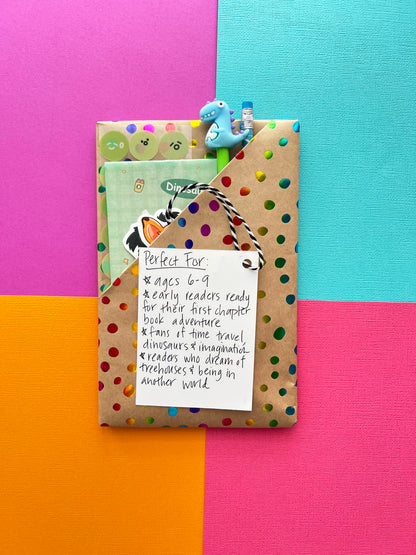 Dinosau
Perfect For:
☆ ages 6-9
☆ early readers ready
for their first chapter
book adventure
☆ fans of time travel,
dinosaurs & imagination
☆ readers who dream of
treehouses & being in
another world